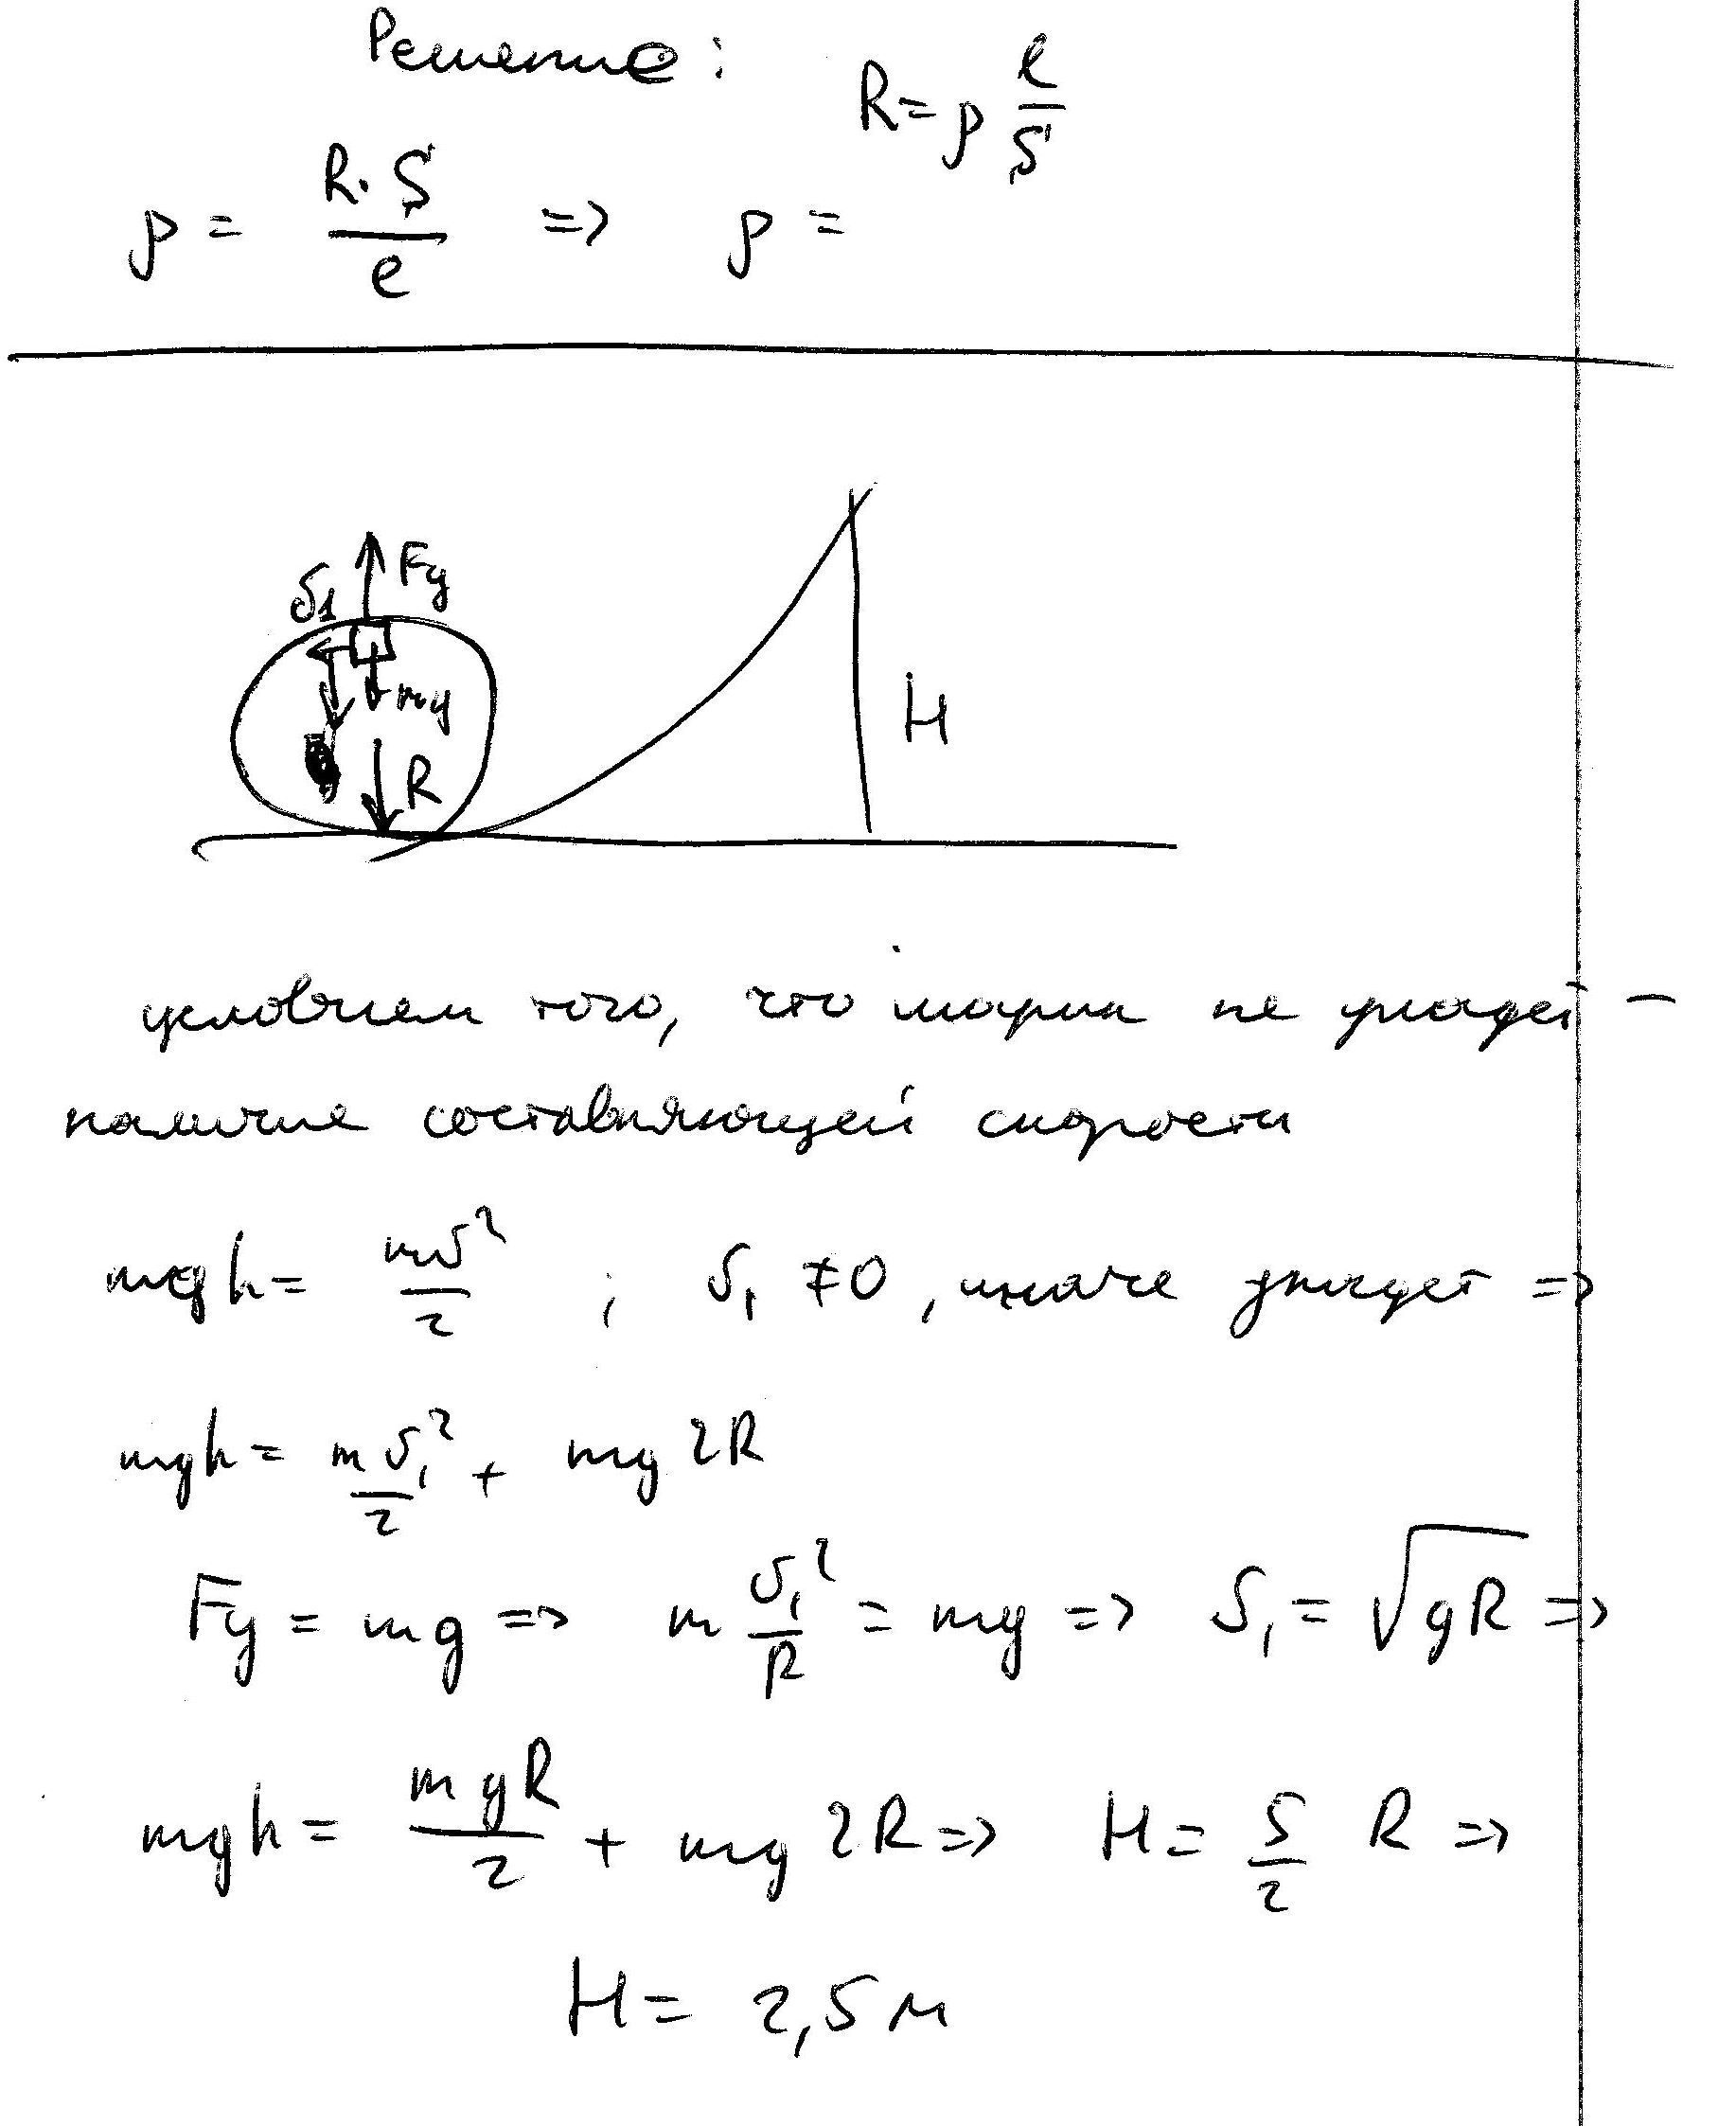 Решение:
R = ρ l/S
ρ = R·S/l => ρ =
Fy
υ1
mg
R
H
условием того, что шарик не упадет —
наличие составляющей скорости
mgh = mυ²/2 ; υ₁ ≠ 0, иначе упадет =>
mgh = mυ₁²/2 + mg2R
Fy = mg => m υ₁²/R = mg => υ₁ = √gR =>
mgh = mgR/2 + mg2R => H = 5/2 R =>
H = 2,5 м